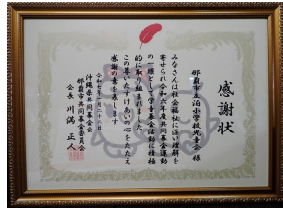 感謝状
那覇市立泊小学校児童会 様
みなさんは社会福祉に深い理解を
寄せられ令和六年度共同募金運動
の一環として学童募金活動に積極
的に取り組まれました
この尊いたすけあいの心をたたえ
感謝の意を表します
令和七年一月二十三日
沖縄県共同募金会
那覇市共同募金委員会
会長 川満 正人